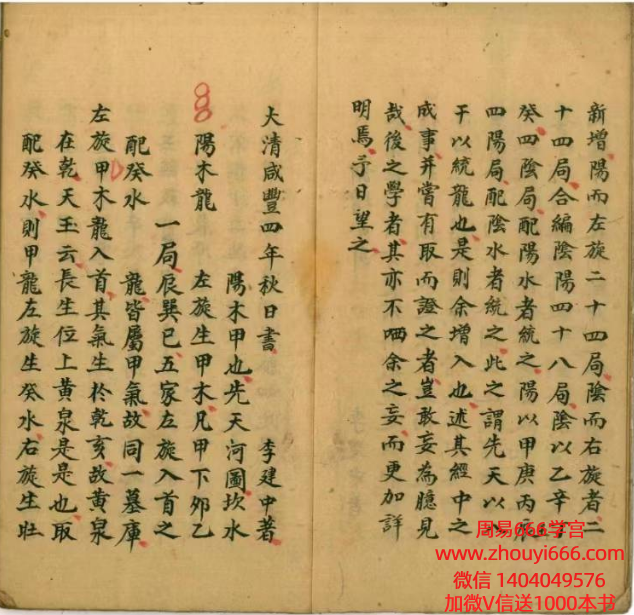 新增陽而左旋二十四局陰而右旋者二
十四局合編陰陽四十八局陰以乙辛丁
癸四陰局配陽水者統之陽以甲庚丙
四陽局配陰水者統之此之謂先天以八
干以統龍也是則余增入也述其經中之
成事并嘗有取而證之者豈敢妄為臆見
哉後之學者其亦不哂余之妄而更加詳
明焉予日望之
大清咸豐四年秋日書 李建中著
陽木龍 陽木甲也先天河圖坎水
左旋生甲木凡甲下卯乙
一局辰巽巳五家左旋入首之
配癸水 龍皆屬甲氣故同一墓庫
左旋甲木龍入首其氣生於乾亥故黃泉
在乾天玉云長生位上黃泉是是也取
配癸水則甲龍左旋生癸水右旋生旺
周易666学宫
www.zhouyi666.com
微信 1404049576
加微V信送1000本书